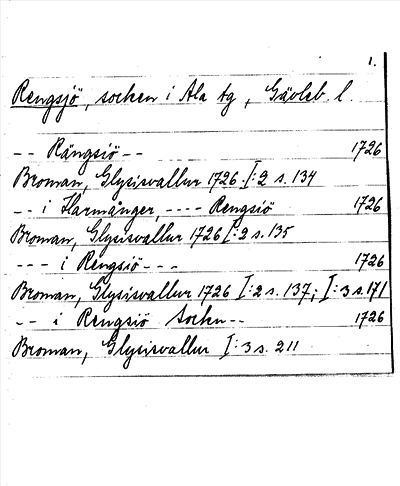 1.
Rengsjö, socken i Ala tg, Gävleb. l.
-- Rängsiö -- 1726
Broman, Glysisvallur 1726 I:2 s. 134
-- i Harmånger, ---- Rengsiö 1726
Broman, Glysisvallur 1726 I:2 s. 135
--- i Rengsiö --- 1726
Broman, Glysisvallur 1726 I:2 s. 137; I:3 s. 171
-- i Rengsiö Sochn -- 1726
Broman, Glysisvallur I:3 s. 211